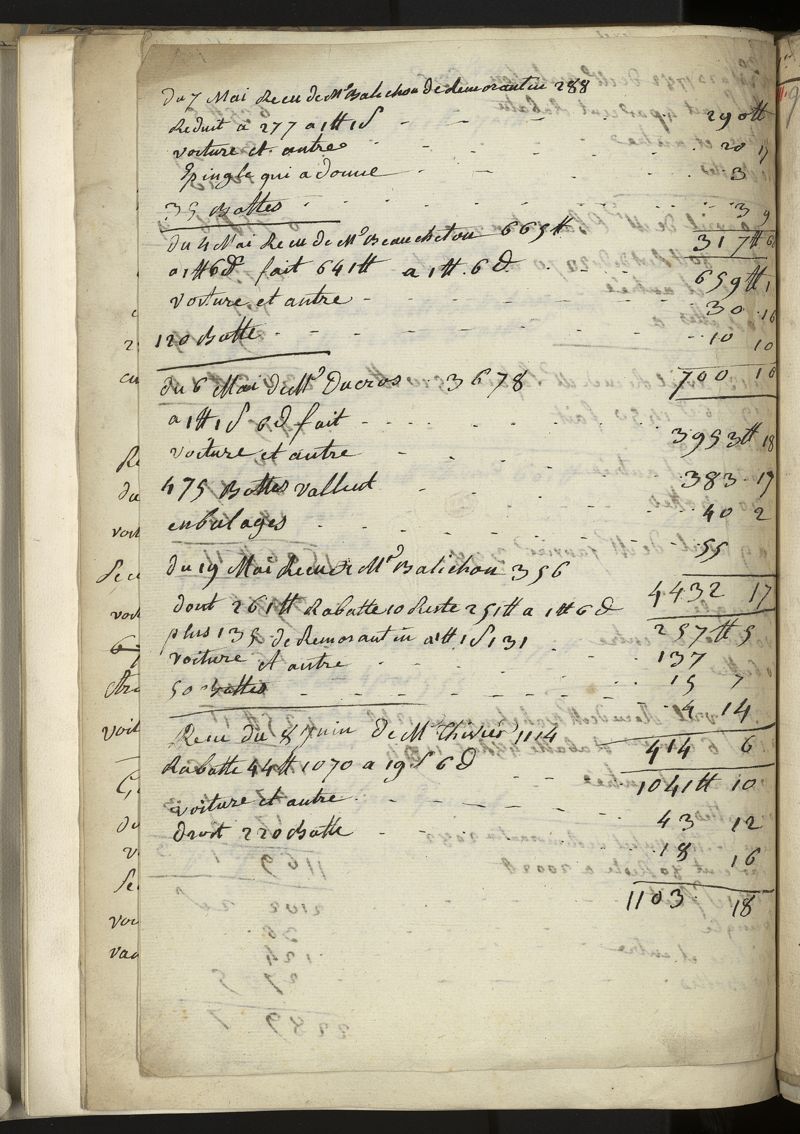 du 7 Mai Recu de Mr Balichon de Remorantin 288
Reduit a 277 a 1tt 1s - - - 290tt
voiture et autre - - - 20 17
Epingle qui a donne - - - 3
35 Bottes - - - 3 9
317tt 6
du 4 Mai Recu de Mr Beaucheton 665tt
a 1tt 6d fait 641tt a 1tt. 6d - - - 659tt 1
voiture et autre - - - 30 16
120 Botte - - - 10 10
700 10
du 6 Mai de Mr Ducros 3678
a 1tt 1s 6d fait - - - 3953tt 18
voiture et autre - - - 383 17
475 Bottes vallent - - - 40 2
enbalages - - - 55
4432 17
du 19 Mai Recu de Mr Balichon 356
dont 261tt Rabatte 10 Reste 251tt a 1tt 6d 257tt 5
plus 135 de Remorantin a 1tt 1s 131 - - - 137
voiture et autre - - - 15 7
50 Bottes - - - 4 14
414 6
Recu du 8 Juin de Mr Thivier 1114
Rabatte 44tt 1070 a 19s 6d - - - 1041tt 10
voiture et autre - - - 43 12
droit 220 Botte - - - 18 16
1103 18